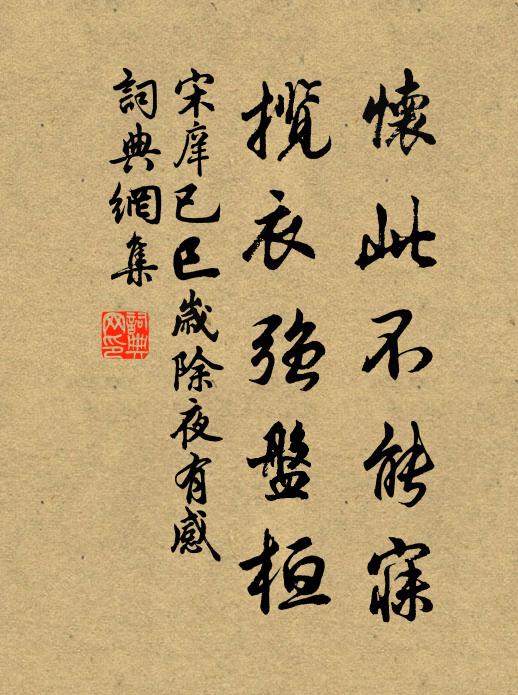 懷此不能寐
攬衣強盤桓
宋庠己巳歲除夜有感
詞典網集
詞典
网印